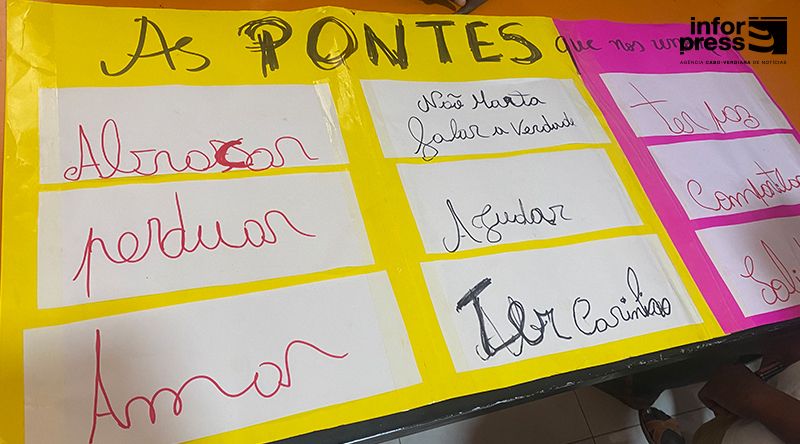 As PONTES que nos unem
Abraçar
perduar
Amar
Não Marta
falar a verdade
Ajudar
Ter Carinho
ter paz
infor
press
AGÊNCIA CABO-VERDIANA DE NOTÍCIAS